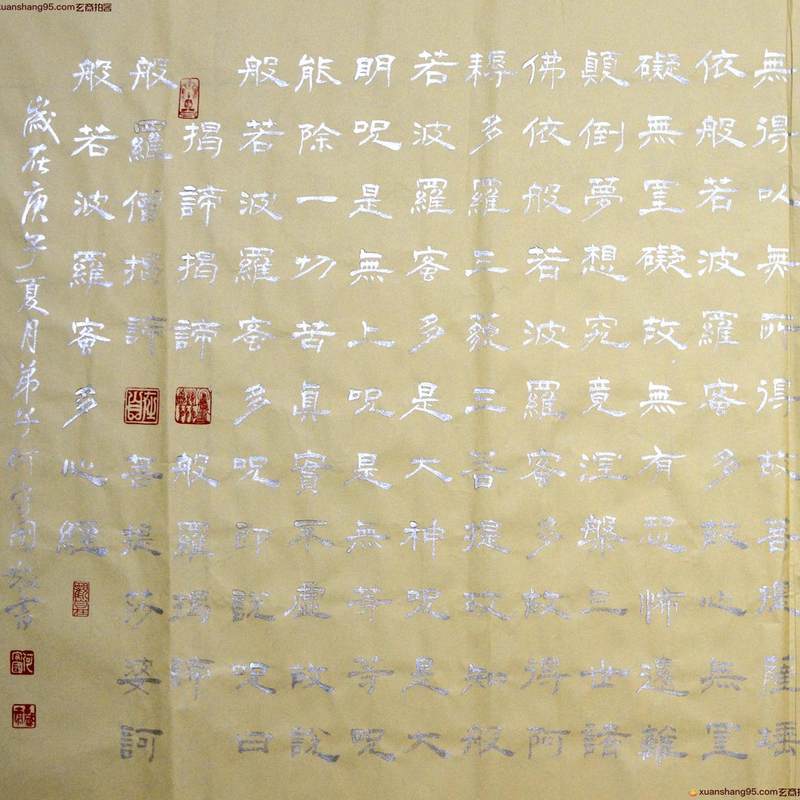 xuanshang95.com玄商拍客
無得以無所得故菩提薩埵
依般若波羅蜜多故心無罣
礙無罣礙故無有恐怖遠離
顛倒夢想究竟涅槃三世諸
佛依般若波羅蜜多故得阿
耨多羅三藐三菩提故知般
若波羅蜜多是大神呪是大
明呪是無上呪是無等等呪
能除一切苦真實不虛故說
般若波羅蜜多呪即說呪曰
揭諦揭諦般羅揭諦
般羅僧揭諦菩提莎婆訶
般若波羅蜜多心經
歲在庚午夏月弟子何國敬書
xuanshang95.com玄商拍客